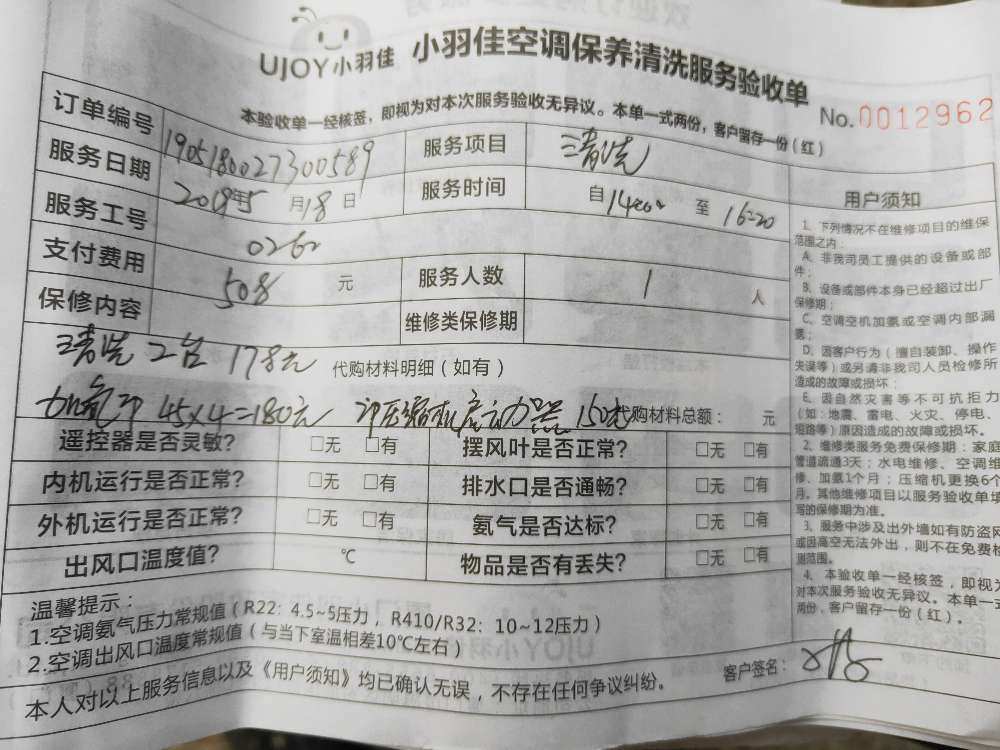 UJOY小羽佳 小羽佳空调保养清洗服务验收单
本验收单一经核签，即视为对本次服务验收无异议。本单一式两份，客户留存一份（红）
No.0012962
订单编号 1905180027300589 服务项目 清洗
服务日期 2019年5月18日 服务时间 自14:00 至 16:20
服务工号 0260
支付费用 508 元 服务人数 1 人
保修内容 维修类保修期
清洗 2台 178元 代购材料明细（如有）
加氟 45×4=180元 压缩机启动器 150元 代购材料总额： 元
遥控器是否灵敏？ □无 □有 摆风叶是否正常？ □无 □有
内机运行是否正常？ □无 □有 排水口是否通畅？ □无 □有
外机运行是否正常？ □无 □有 氨气是否达标？ □无 □有
出风口温度值？ ℃ 物品是否有丢失？ □无 □有
温馨提示：
1.空调氨气压力常规值（R22：4.5~5压力，R410/R32：10~12压力）
2.空调出风口温度常规值（与当下室温相差10℃左右）
本人对以上服务信息以及《用户须知》均已确认无误，不存在任何争议纠纷。
客户签名：
用户须知
1、下列情况不在维修项目的维保
范围之内：
A、非我司员工提供的设备或部
件；
B、设备或部件本身已经超过出厂
保修期；
C、空调空机加氨或空调内部漏
氨；
D、因客户行为（擅自装卸、操作
失误等）或另请非我司人员检修所
造成的故障或损坏；
E、因自然灾害等不可抗拒力
（如：地震、雷电、火灾、停电、
短路等）原因造成的故障或损坏。
2、维修类服务免费保修期：家庭
管道疏通3天；水电维修、空调维
修、加氨1个月；压缩机更换6个
月。其他维修项目以服务验收单填
写的保修期为准。
3、服务中涉及出外墙如有防盗网
或因高空无法外出，则不在免费检
测范围。
4、本验收单一经核签，即视为
对本次服务验收无异议。本单一式
两份，客户留存一份（红）。